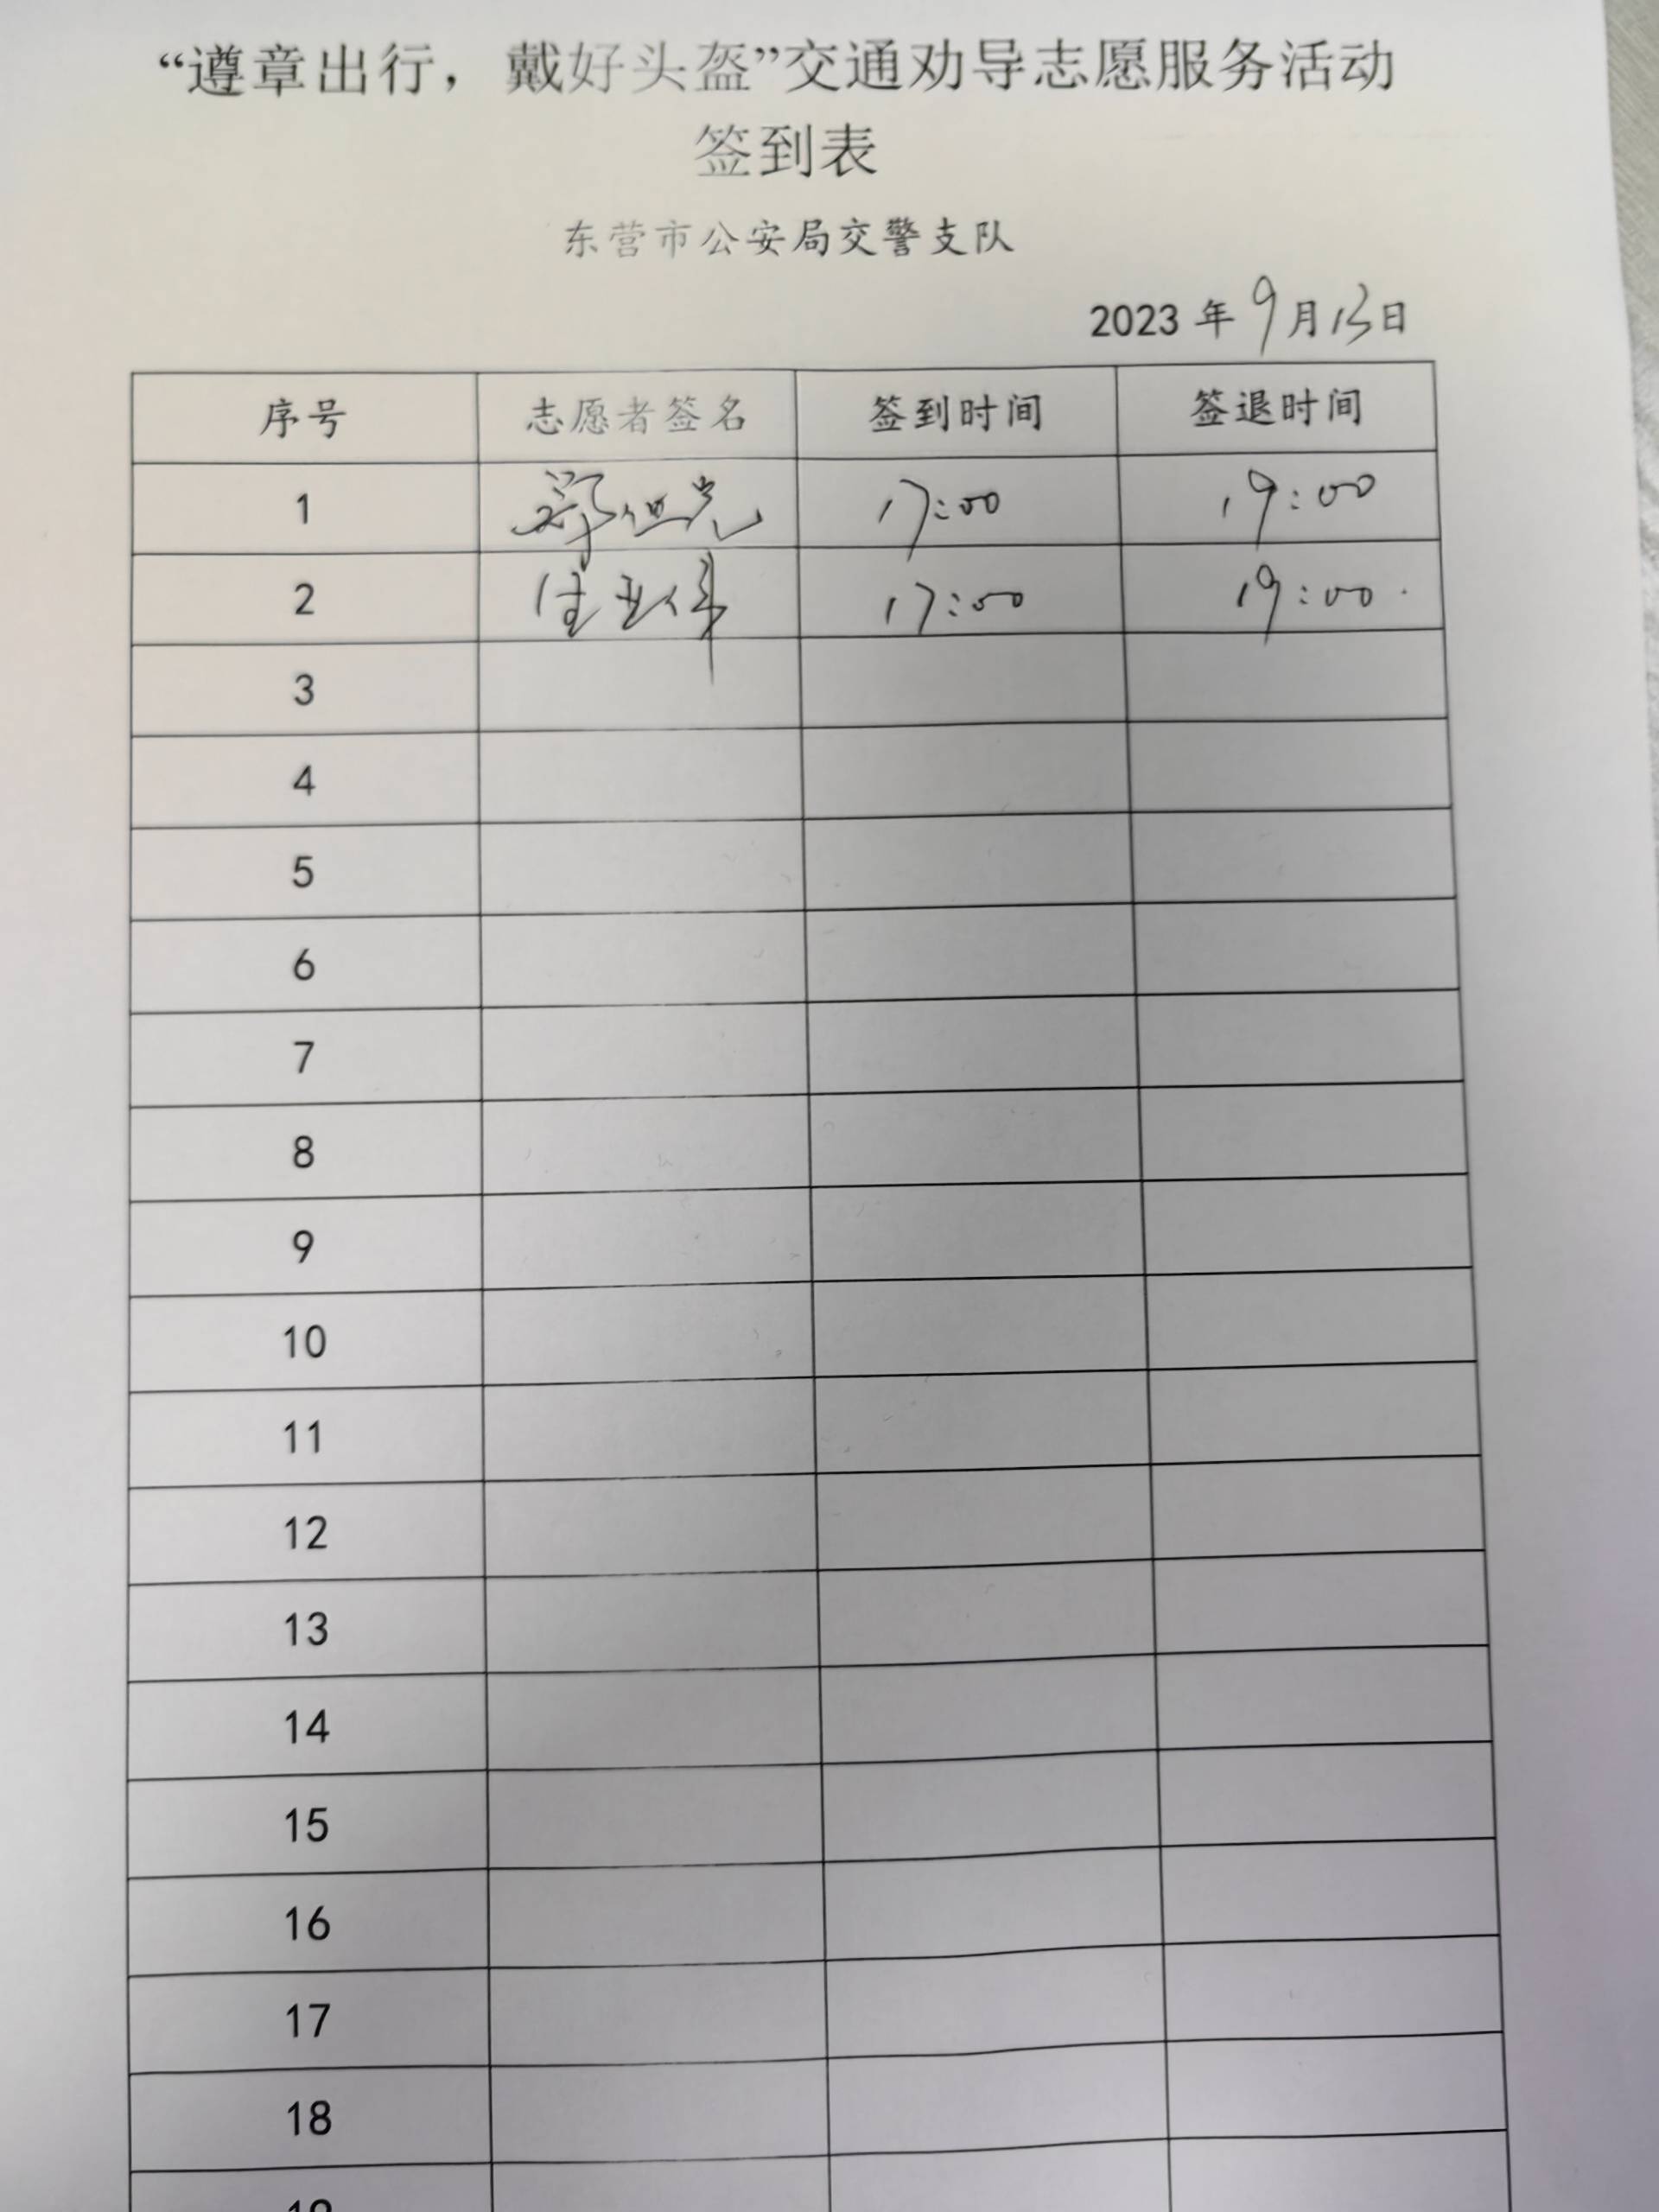 “遵章出行，戴好头盔”交通劝导志愿服务活动
签到表
东营市公安局交警支队
2023年9月13日
序号 志愿者签名 签到时间 签退时间
1 17:00 19:00
2 17:00 19:00
3
4
5
6
7
8
9
10
11
12
13
14
15
16
17
18